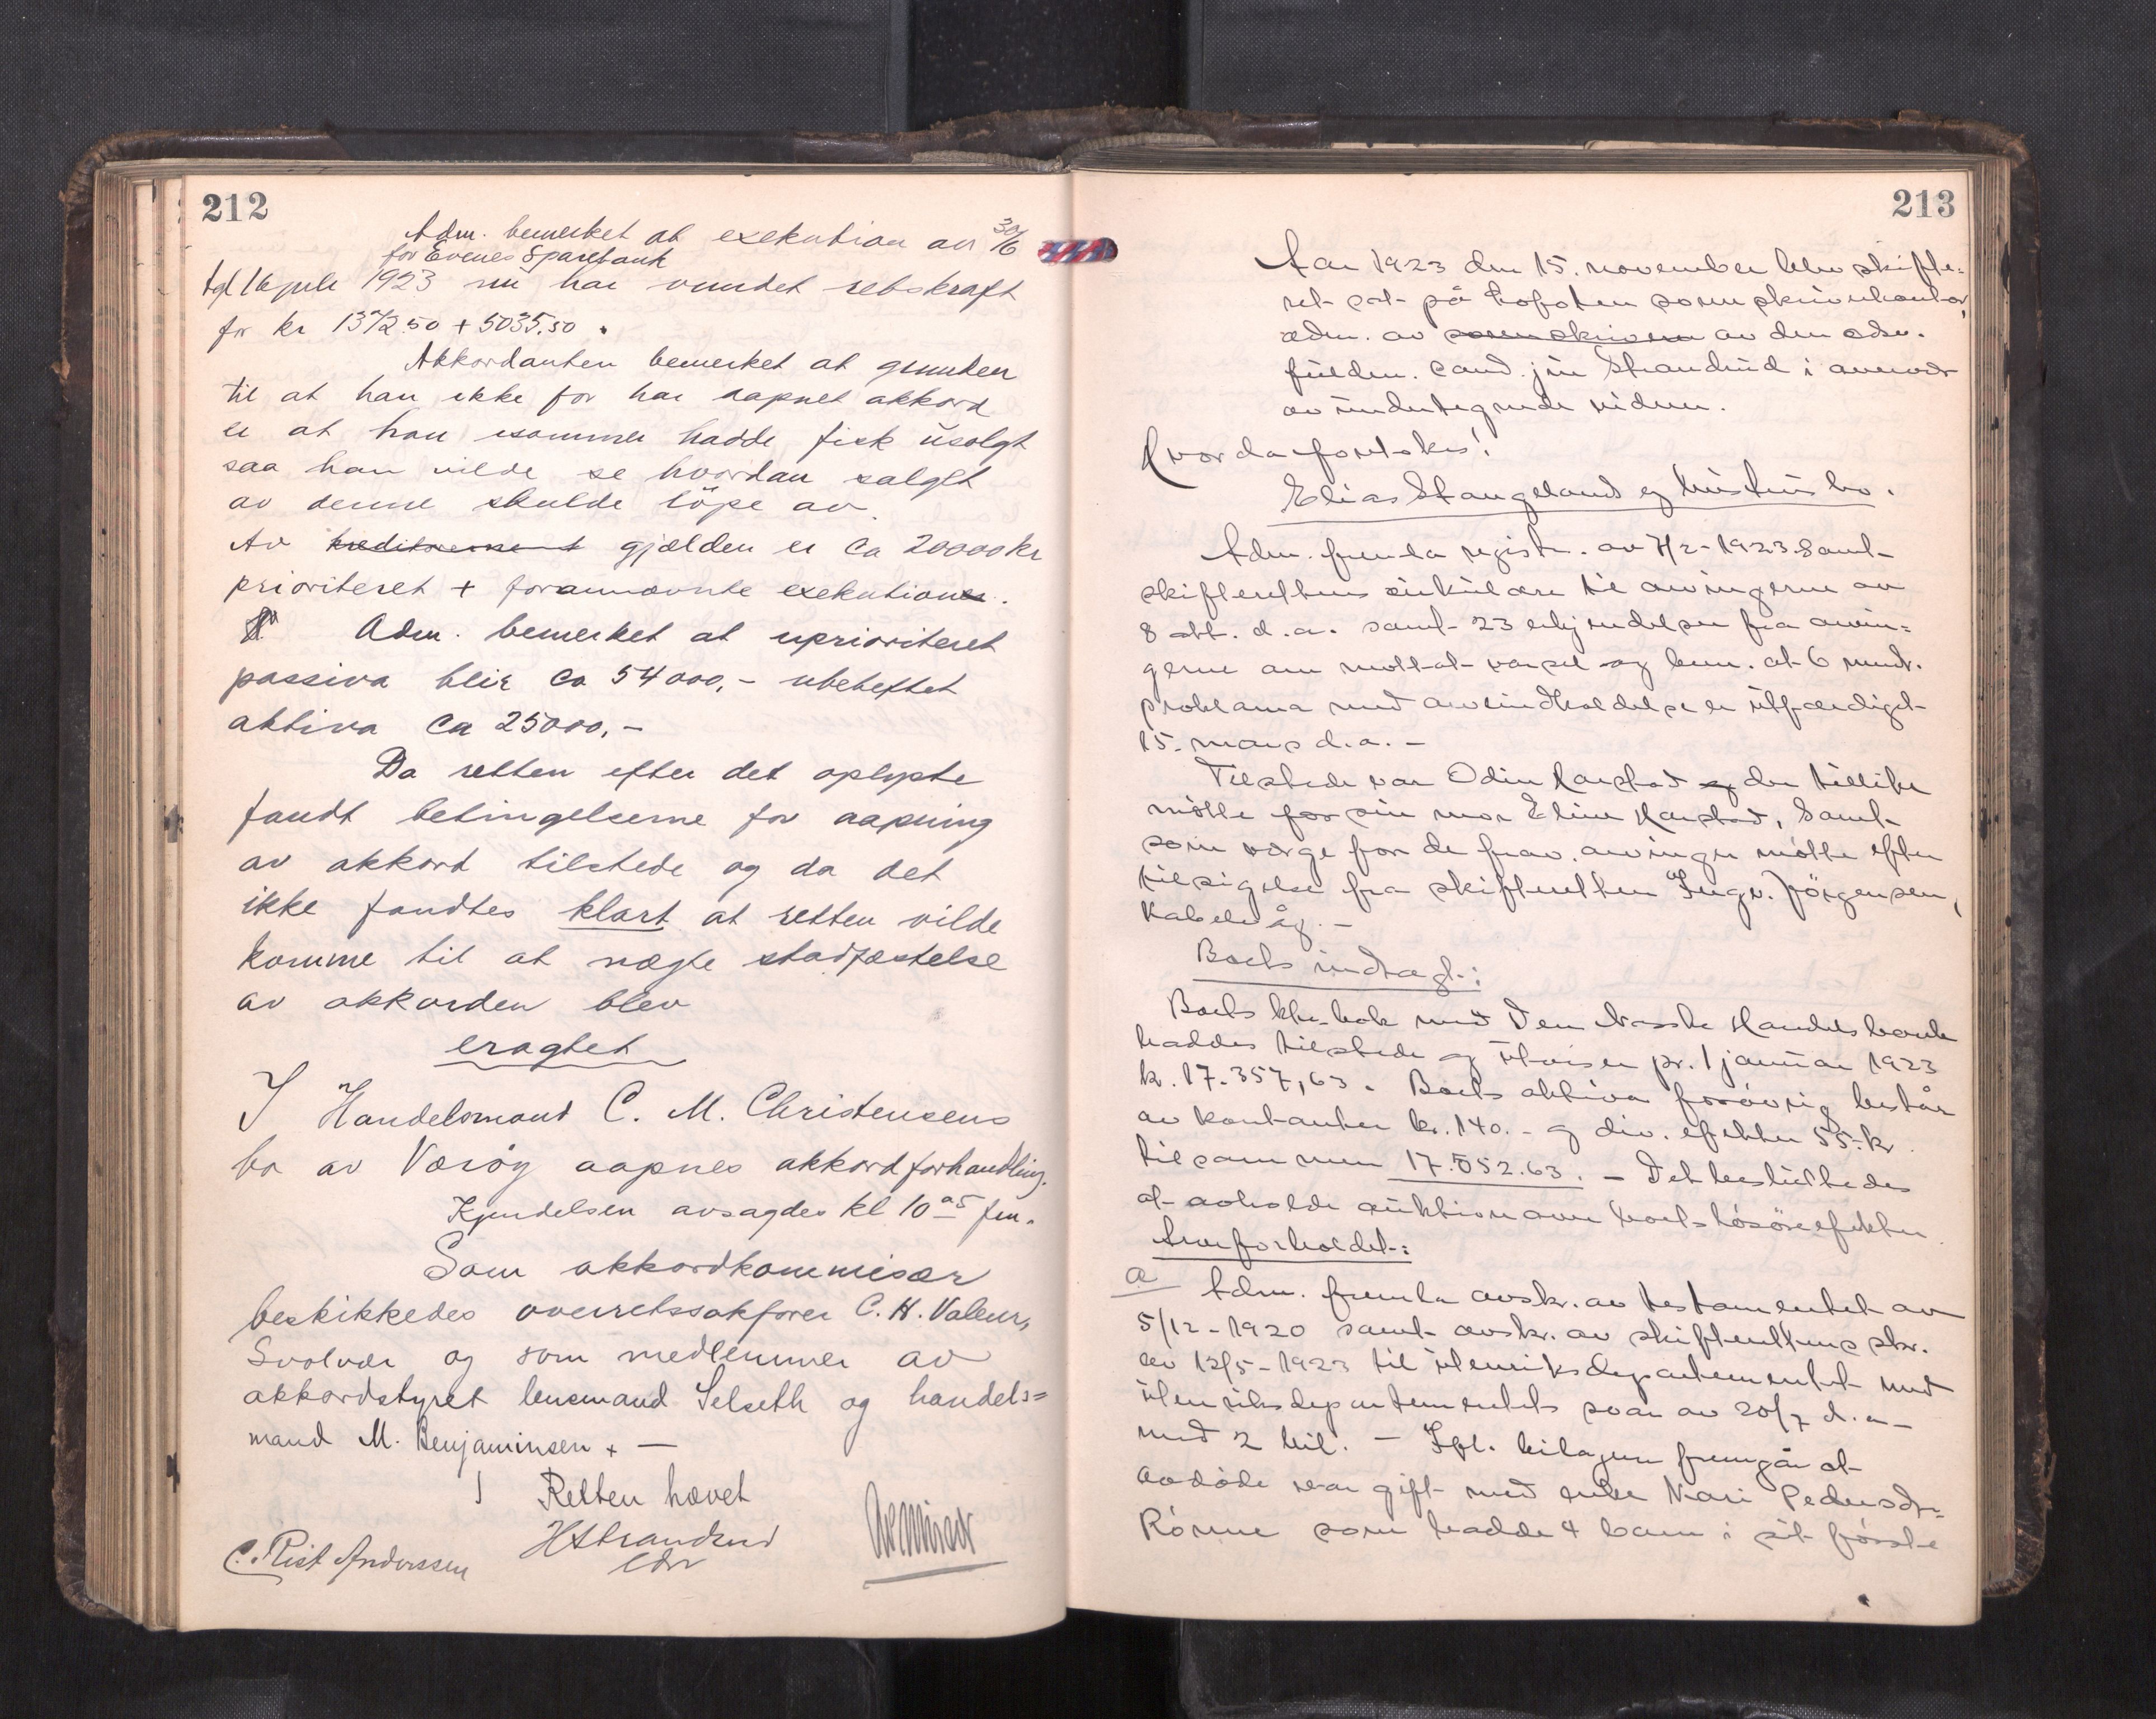 212
Adm. bemerket at exekution av 30/6
for Evenes Sparebank
tgl 16 juli 1923 nu har vundet retskraft
for kr 1372.50 + 5035.50.
Akkordanten bemerket at grunden
til at han ikke før har aapnet akkord
er at han isommer hadde fisk usolgt
saa han vilde se hvordan salget
av denne skulde löpe av.
Av gjælden er ca 20000 kr
prioriteret + forannævnte exekution.
Adm. bemerket at uprioriteret
passiva blir ca 54000,- ubeheftet
aktiva ca 25000,-
Da retten efter det oplyste
fandt betingelserne for aapning
av akkord tilstede og da det
ikke fandtes klart at retten vilde
komme til at nægte stadfæstelse
av akkorden blev
eragtet
I Handelsmand C. M. Christensens
bo av Værøy aapnes akkordforhandling.
Kjendelsen avsagdes kl 10 fm.
Som akkordkommisær
beskikkedes overretssakfører C. H. Valeur,
Svolvær og som medlemmer av
akkordstyret lensmand Selseth og handels=
mand M. Benjaminsen + —
Retten hævet
HStrandrud
C. Rist Anderssen
213
Aar 1923 den 15. november blev skifte=
ret sat på Lofoten sorenskriverkontor,
adm. av sorenskriveren av den edsv.
fuldm. cand. jur Strandrud i overvær
av undertegnede vidner.
Hvorda foretokes:
Elias Stangeland og hustrus bo.
Adm. fremla registr. av 7/2-1923 samt
skifterettens cirkulære til arvingerne av
8 okt. d.a. samt 23 erkjendelser fra arvin=
gerne om mottat varsel og bem. at 6 mndr.
proklama med arveindkaldelse er utfærdiget
15. mars d.a. -
Tilstede var Odin Harstad og der tillike
mötte for sin mor Eline Harstad, samt
som værge for de frav. arvinger mötte efter
tilsigelse fra skifteretten Ingv. Jörgensen,
Kabelvåg. -
Boets indtægt:
Boets bk.-bok med Den Norske Handelsbank
haddes tilstede og utviser pr. 1 januar 1923
kr. 17.357,63. Boets aktiva forøvrig består
av kontanter kr. 140.- og div. efekter 55.- kr.
tilsammen 17.552.63. - Det besluttedes
at avholde auktion over boets lösöreefekter.
Arveforholdet:
a Adm. fremla avskr. av testamentet av
5/12-1920 samt avskr. av skifterettens skr.
av 12/5-1923 til utenriksdepartementet med
utenriksdepartementets svar av 20/7 d.a.
med 2 bil. - Ifl. bilagene fremgår at
avdöde var gift med enke Mari Pedersdr.
Rönne som hadde 4 barn i sit förste